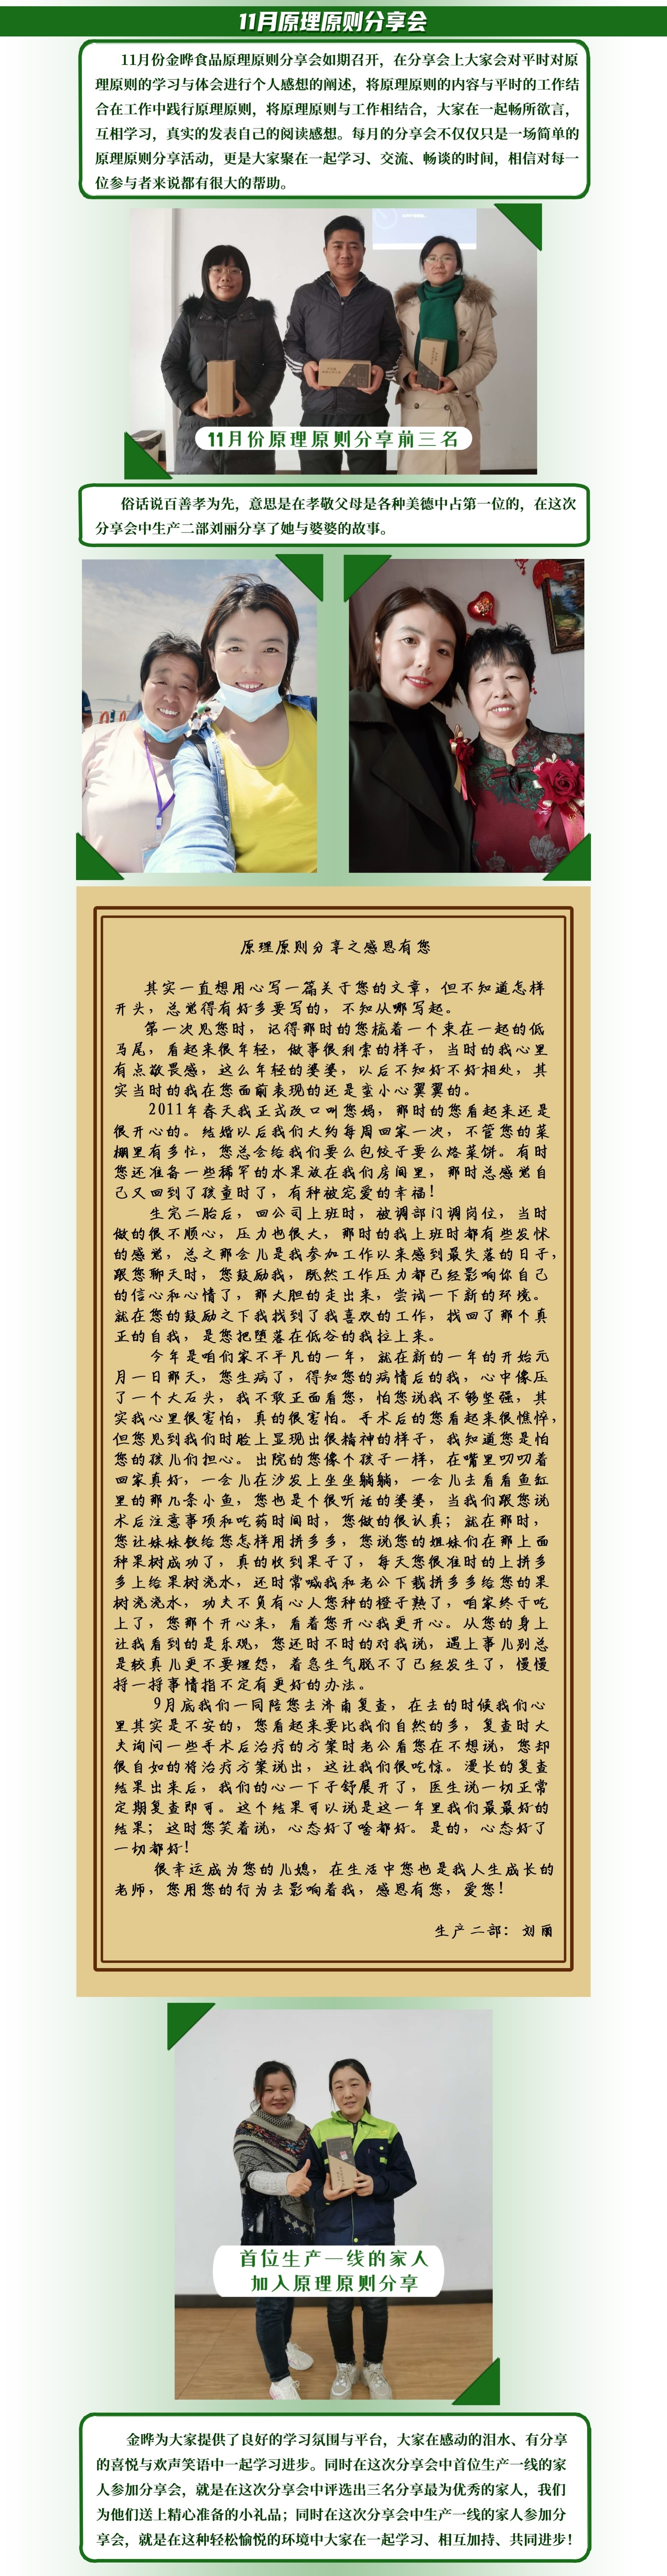 11月原理原则分享会
11月份金晔食品原理原则分享会如期召开，在分享会上大家会对平时对原
理原则的学习与体会进行个人感想的阐述，将原理原则的内容与平时的工作结
合在工作中践行原理原则，将原理原则与工作相结合，大家在一起畅所欲言，
互相学习，真实的发表自己的阅读感想。每月的分享会不仅仅只是一场简单的
原理原则分享活动，更是大家聚在一起学习、交流、畅谈的时间，相信对每一
位参与者来说都有很大的帮助。
11月份原理原则分享前三名
俗话说百善孝为先，意思是在孝敬父母是各种美德中占第一位的，在这次
分享会中生产二部刘丽分享了她与婆婆的故事。
原理原则分享之感恩有您
其实一直想用心写一篇关于您的文章，但不知道怎样
开头，总觉得有好多要写的，不知从哪写起。
第一次见您时，记得那时的您梳着一个束在一起的低
马尾，看起来很年轻，做事很利索的样子，当时的我心里
有点敬畏感，这么年轻的婆婆，以后不知好不好相处，其
实当时的我在您面前表现的还是蛮小心翼翼的。
2011年春天我正式改口叫您妈，那时的您看起来还是
很开心的。结婚以后我们大约每周回家一次，不管您的菜
棚里有多忙，您总会给我们要么包饺子要么烙菜饼。有时
您还准备一些稀罕的水果放在我们房间里，那时总感觉自
己又回到了孩童时了，有种被宠爱的幸福！
生完二胎后，回公司上班时，被调部门调岗位，当时
做的很不顺心，压力也很大，那时的我上班时都有些发怵
的感觉，总之那会儿是我参加工作以来感到最失落的日子，
跟您聊天时，您鼓励我，既然工作压力都已经影响你自己
的信心和心情了，那大胆的走出来，尝试一下新的环境。
就在您的鼓励之下我找到了我喜欢的工作，找回了那个真
正的自我，是您把堕落在低谷的我拉上来。
今年是咱们家不平凡的一年，就在新的一年的开始元
月一日那天，您生病了，得知您的病情后的我，心中像压
了一个大石头，我不敢正面看您，怕您说我不够坚强，其
实我心里很害怕，真的很害怕。手术后的您看起来很憔悴，
但您见到我们时脸上显现出很精神的样子，我知道您是怕
您的孩儿们担心。出院的您像个孩子一样，在嘴里叨叨着
回家真好，一会儿在沙发上坐坐躺躺，一会儿去看看鱼缸
里的那几条小鱼，您也是个很听话的婆婆，当我们跟您说
术后注意事项和吃药时间时，您做的很认真；就在那时，
您让妹妹教给您怎样用拼多多，您说您的姐妹们在那上面
种果树成功了，真的收到果子了，每天您很准时的上拼多
多上给果树浇水，还时常喊我和老公下载拼多多给您的果
树浇浇水，功夫不负有心人您种的橙子熟了，咱家终于吃
上了，您那个开心来，看着您开心我更开心。从您的身上
让我看到的是乐观，您还时不时的对我说，遇上事儿别总
是较真儿更不要埋怨，着急生气脱不了已经发生了，慢慢
捋一捋事情指不定有更好的办法。
9月底我们一同陪您去济南复查，在去的时候我们心
里其实是不安的，您看起来要比我们自然的多，复查时大
夫询问一些手术后治疗的方案时老公看您在不想说，您却
很自如的将治疗方案说出，这让我们很吃惊。漫长的复查
结果出来后，我们的心一下子舒展开了，医生说一切正常
定期复查即可。这个结果可以说是这一年里我们最最好的
结果；这时您笑着说，心态好了啥都好。是的，心态好了
一切都好！
很幸运成为您的儿媳，在生活中您也是我人生成长的
老师，您用您的行为去影响着我，感恩有您，爱您！
生产二部：刘丽
首位生产一线的家人
加入原理原则分享
金晔为大家提供了良好的学习氛围与平台，大家在感动的泪水、有分享
的喜悦与欢声笑语中一起学习进步。同时在这次分享会中首位生产一线的家
人参加分享会，就是在这次分享会中评选出三名分享最为优秀的家人，我们
为他们送上精心准备的小礼品；同时在这次分享会中生产一线的家人参加分
享会，就是在这种轻松愉悦的环境中大家在一起学习、相互加持、共同进步！